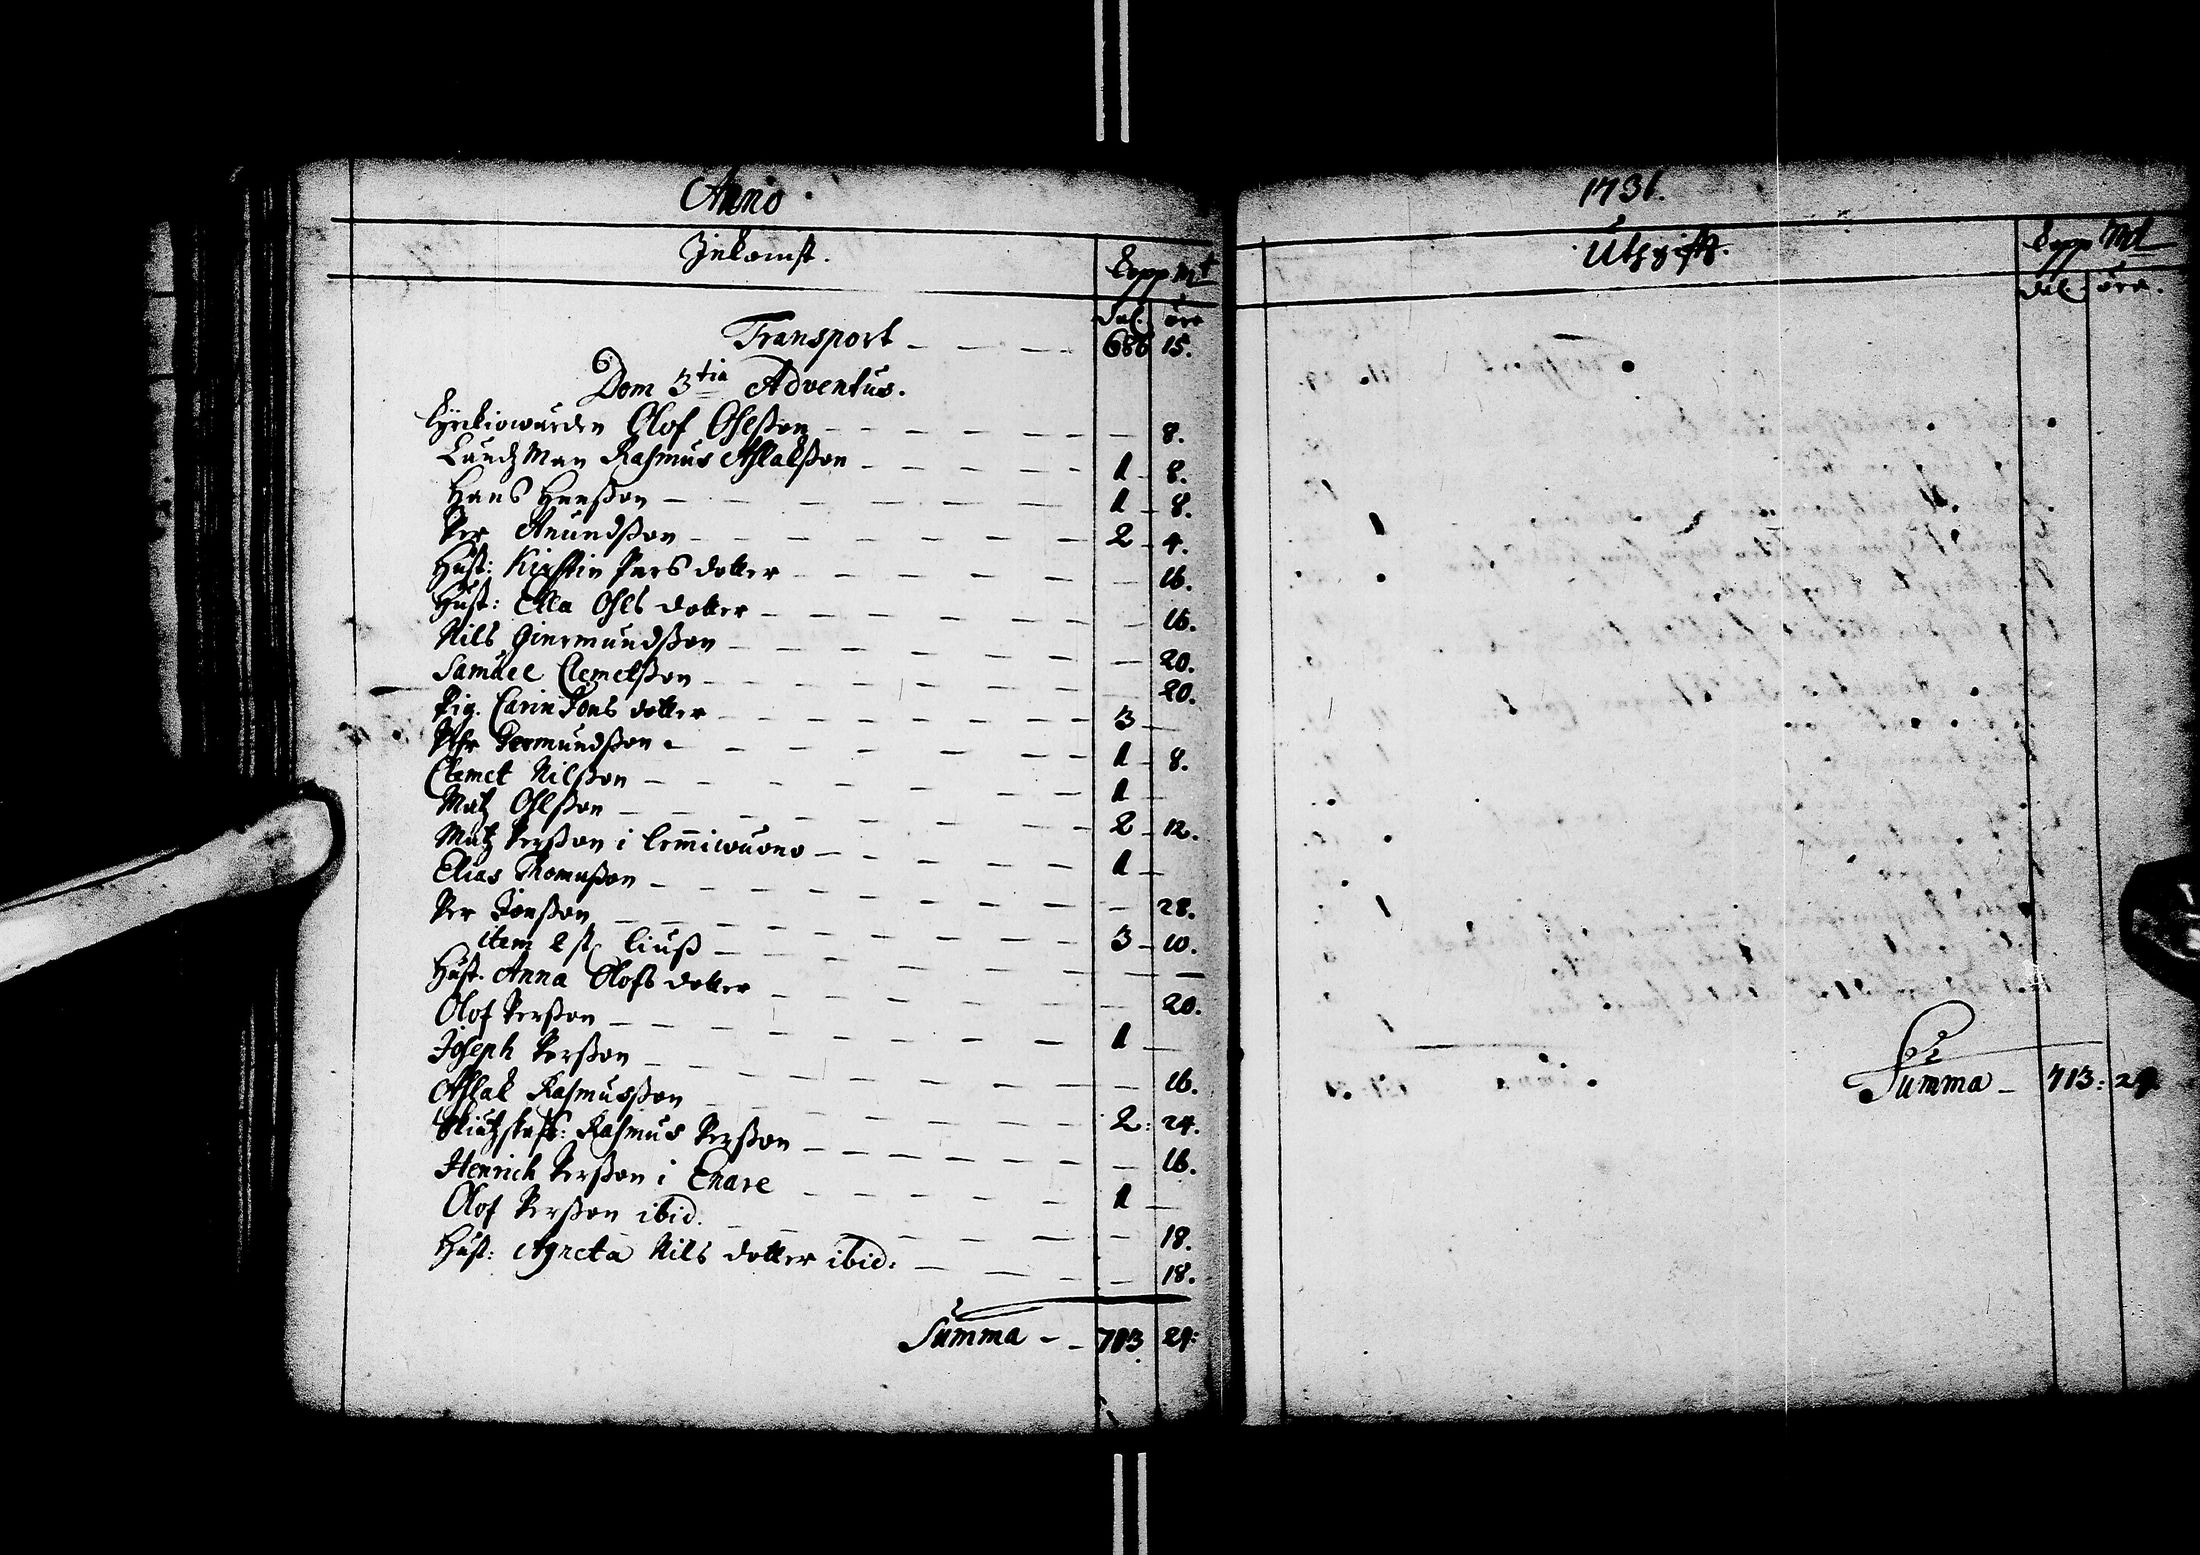 Anno
Inkomst.
Kopp Mt
dal. öre
Transport — 686 15.
Dom 3tia Adventus.
Kyrkiowärden Olof Ohlßon — 8.
Ländzman Rasmus Aslakßon — 1 8.
Hans Hanßon — 1 8.
Per Anundßon — 2 4.
Hust: Kirstin Pers dotter — 16.
Hust: Ella Ohls dotter — 16.
Nils Giermundßon — 20.
Samuel Clemetßon — 20.
Pig. Carin Jons dotter — 3 —
Germundßon — 1 8.
Clemet Nilßon — 1 —
Matz Ohlßon — 2 12.
Matz Perßon i — 1 —
Elias Thomaßon — 28.
Per Jonßon — 3 10.
item 2 st liuß — —
Hust. Anna Olofs dotter — 20.
Olof Perßon — 1 —
Joseph Perßon — 16.
Aslak Rasmusßon — 2: 24.
Rasmus Perßon — 16.
Henrich Perßon i Enare — 1 —
Olof Perßon ibid. — 18.
Hust: Agneta Nils dotter ibid. — 18.
Summa — 713 29:
1731.
Uthgift.
Kopp Mt
dal. öre.
Summa — 713: 29